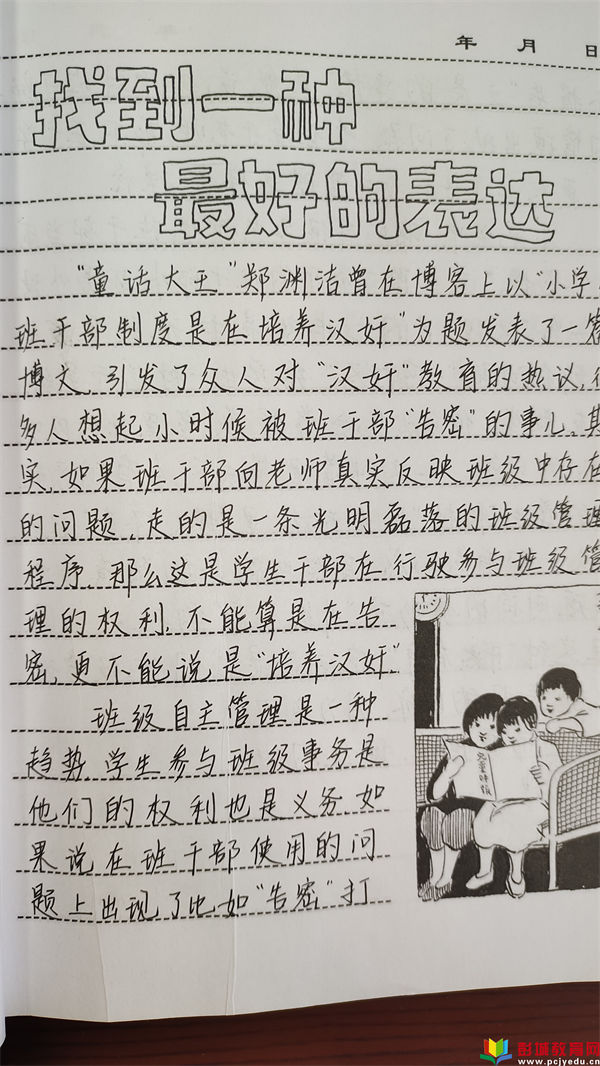 年 月 日
找到一种
最好的表达
"童话大王"郑渊洁曾在博客上以"小学
班干部制度是在培养汉奸"为题发表了一篇
博文，引发了众人对"汉奸"教育的热议，很
多人想起小时候被班干部"告密"的事儿，其
实，如果班干部向老师真实反映班级中存在
的问题，走的是一条光明磊落的班级管理
程序，那么这是学生干部在行驶参与班级管
理的权利，不能算是在告
密，更不能说是"培养汉奸"
班级自主管理是一种
趋势，学生参与班级事务是
他们的权利也是义务，如
果说在班干部使用的问
题上出现了比如"告密"打
儿童时报
彭城教育网
www.pcjyedu.cn